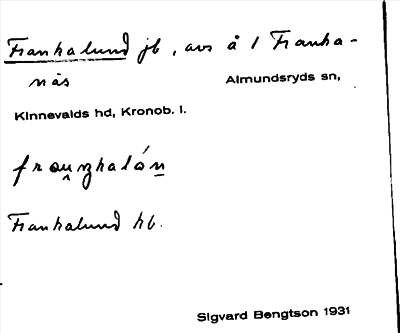 Frankalund jb, avs å 1 Franka-
näs Almundsryds sn,
Kinnevalds hd, Kronob. l.
Frankalund hb.
Sigvard Bengtson 1931